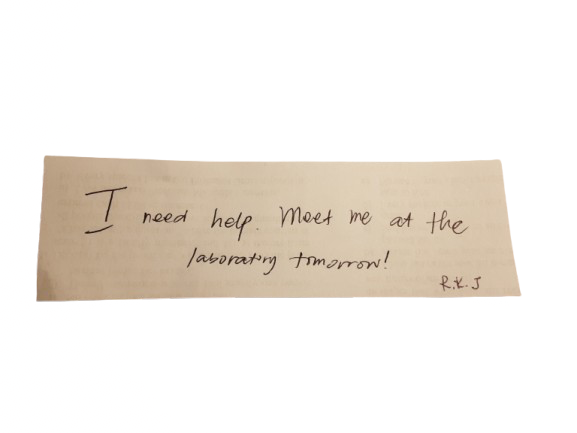 I need help. Meet me at the
laboratory tomorrow!
R.K.J